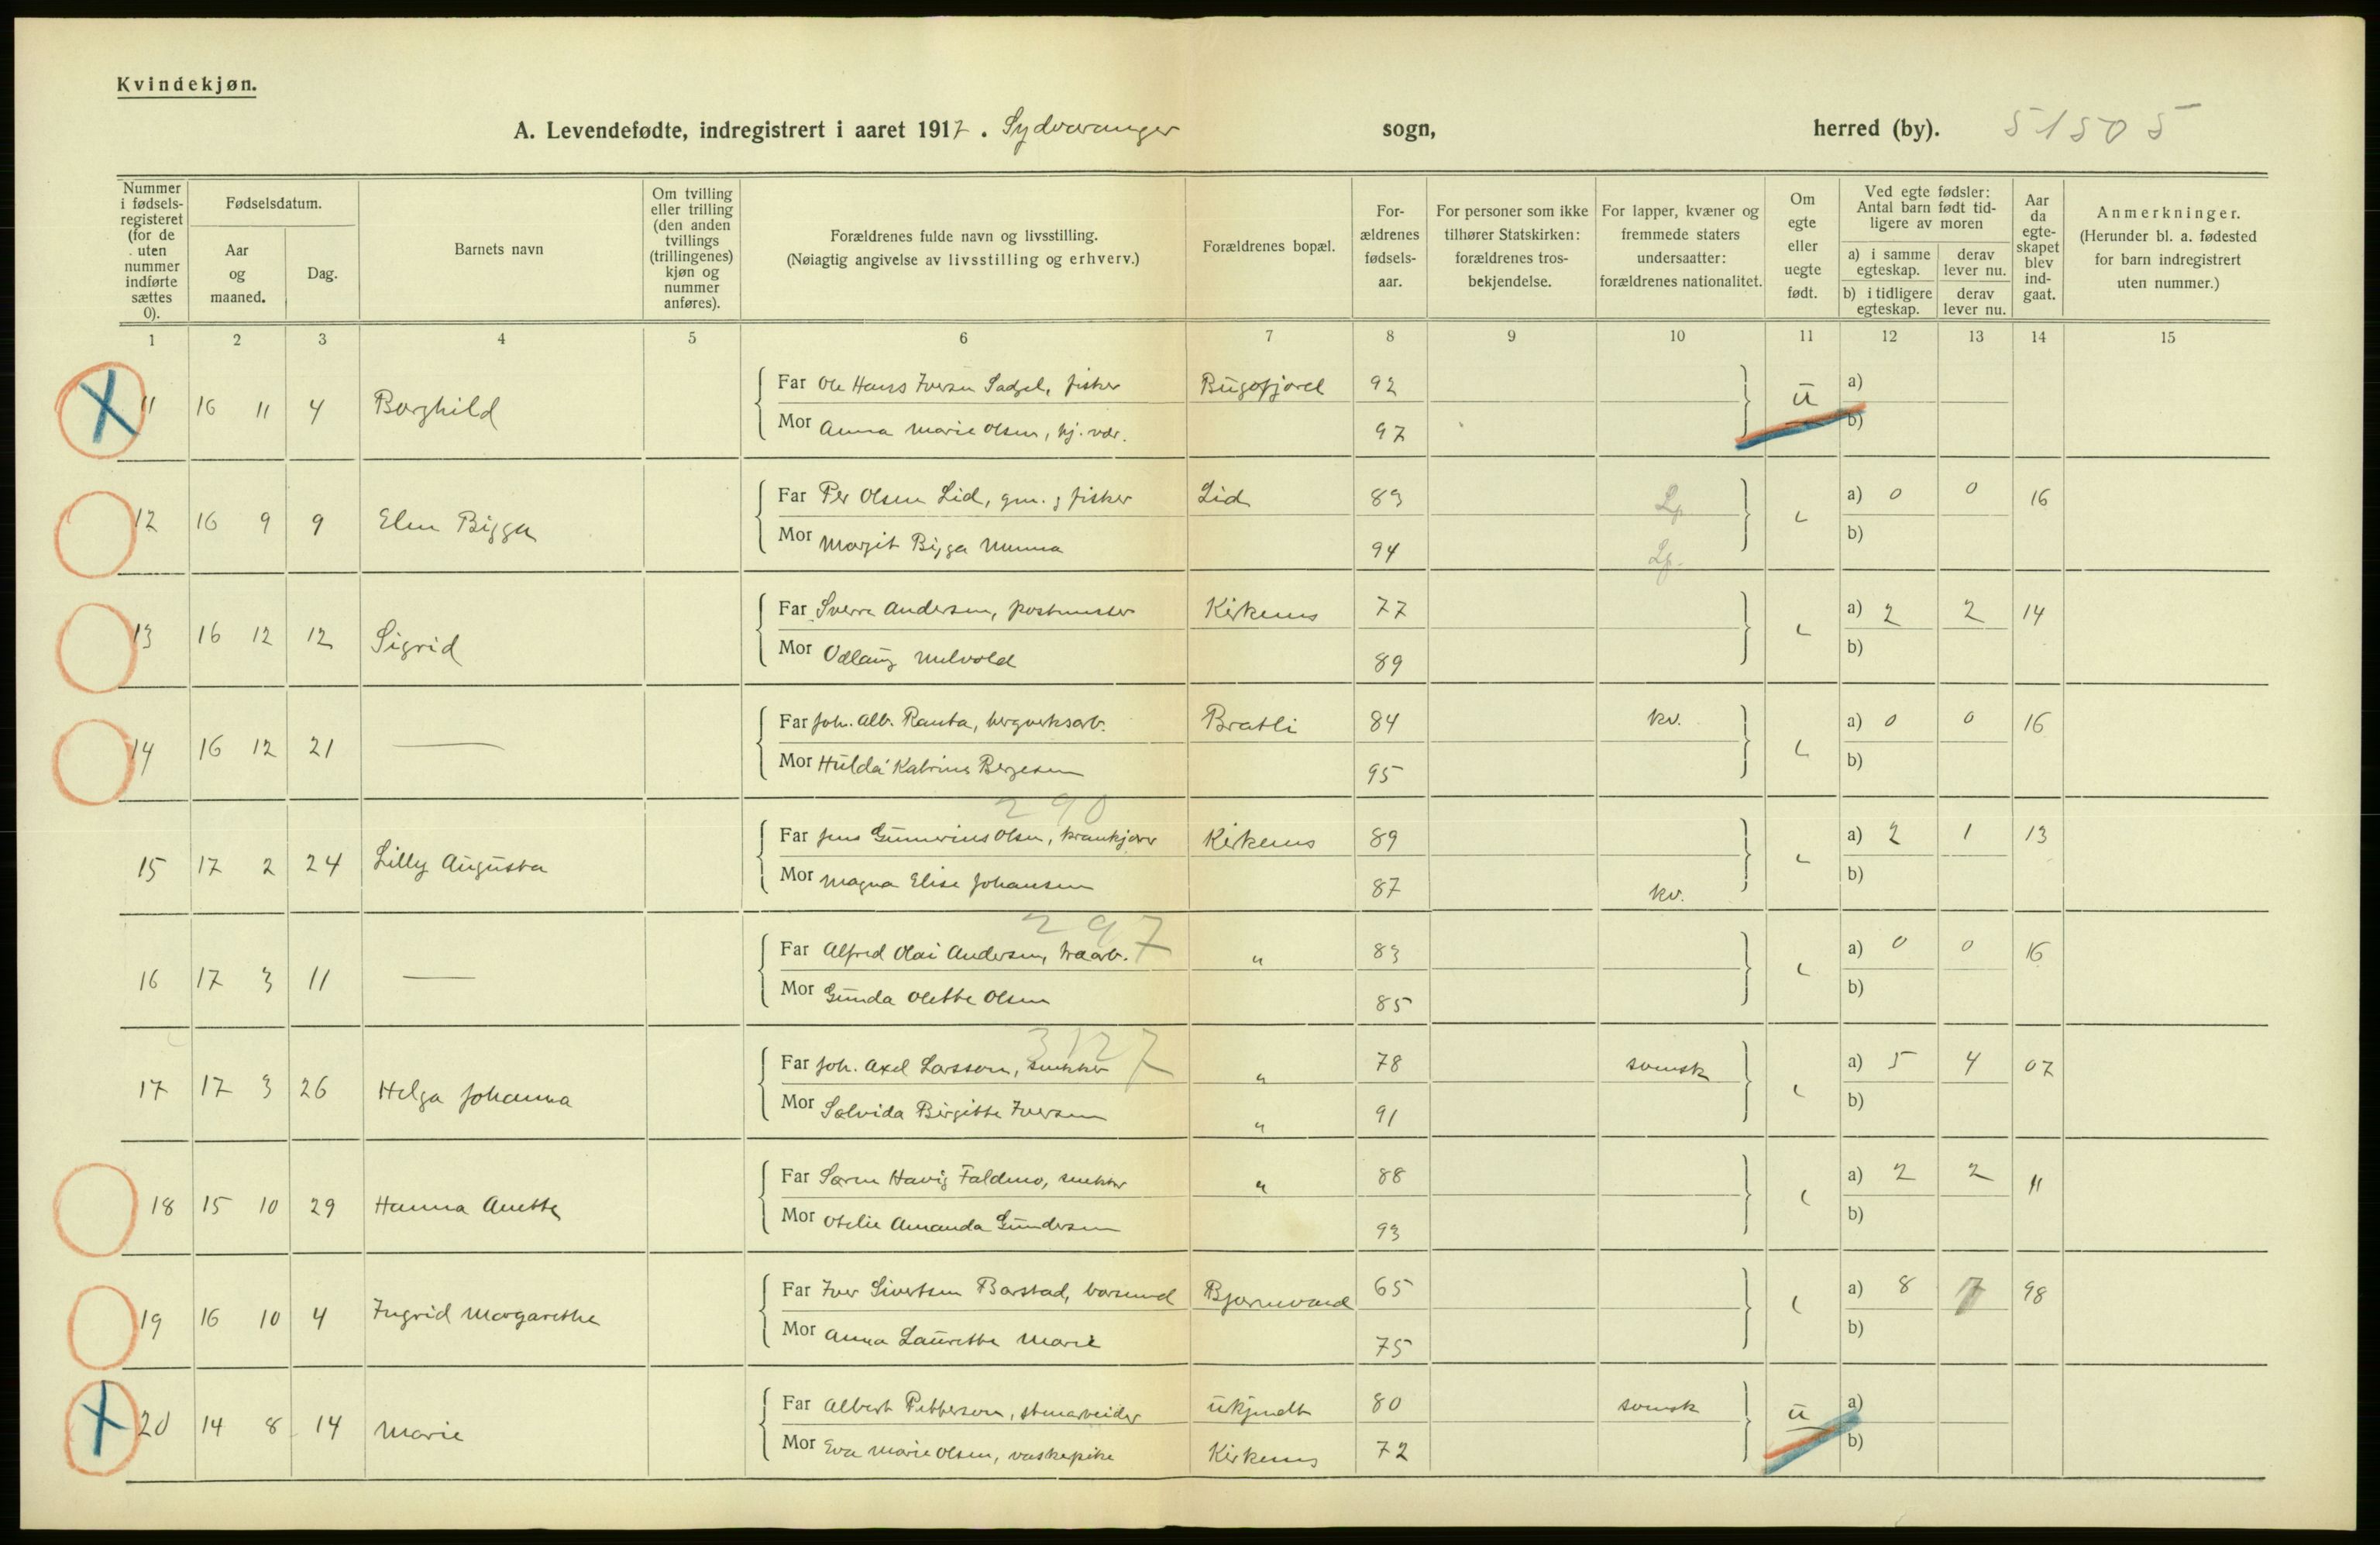 Kvindekjøn.
A. Levendefødte, indregistrert i aaret 1917. Sydvaranger sogn, herred (by). 51505
Nummer i fødsels-registeret (for de uten nummer indførte sættes 0).
Fødselsdatum.
Aar og maaned.
Dag.
Barnets navn
Om tvilling eller trilling (den anden tvillings (trillingenes) kjøn og nummer anføres).
Forældrenes fulde navn og livsstilling.
(Nøiagtig angivelse av livsstilling og erhverv.)
Forældrenes bopæl.
For-ældrenes fødsels-aar.
For personer som ikke tilhører Statskirken: forældrenes tros-bekjendelse.
For lapper, kvæner og fremmede staters undersaatter: forældrenes nationalitet.
Om egte eller uegte født.
Ved egte fødsler: Antal barn født tid-ligere av moren
a) i samme egteskap. derav lever nu.
b) i tidligere egteskap. derav lever nu.
Aar da egte-skapet blev ind-gaat.
Anmerkninger.
(Herunder bl. a. fødested for barn indregistrert uten nummer.)
1 2 3 4 5 6 7 8 9 10 11 12 13 14 15
11 16 11 4 Borghild Far Ole Hans Iversen fisker Bugøfjord 92 ü a)
Mor Anna Marie Olsen, hj. vær. 97 b)
12 16 9 9 Elen Bigga Far Per Olsen Lid, gm. & fisker Lid 83 Lp. a) 0 0 16
Mor Margit Bigga 94 Lp. b)
13 16 12 12 Sigrid Far Sverre Andersen, postmester Kirkenes 77 a) 2 2 14
Mor Odlaug Melvold 89 b)
14 16 12 21 — Far Joh. Alb. Ranta, bergverksarb. Bratli 84 kv. a) 0 0 16
Mor Hulda Katrine Bergesen 95 b)
290
15 17 2 24 Lilly Augusta Far Jens Gunnerius Olsen, krankjører Kirkenes 89 a) 2 1 13
Mor Magna Elise Johansen 87 kv. b)
297
16 17 3 11 — Far Alfred Olai Andersen, træarb. " 83 a) 0 0 16
Mor Gunda Olette Olsen 85 b)
3127
17 17 3 26 Helga Johanna Far Joh. Axel Larsson, snekker " 78 svensk a) 5 4 07
Mor Solvida Birgitte Iversen " 91 b)
18 15 10 29 Hanna Anette Far Søren Havig Faldmo, snekker " 88 a) 2 2 11
Mor Otelie Amanda Gundersen 93 b)
19 16 10 4 Ingrid Margarethe Far Iver Sivertsen Barstad, Bjørnevand 65 a) 8 7 98
Mor Anna Laurette Marie 75 b)
20 14 8 14 Marie Far Albert Petterson, stenarbeider ukjendt 80 svensk ü a)
Mor Eva Marie Olsen, vaskepike Kirkenes 72 b)